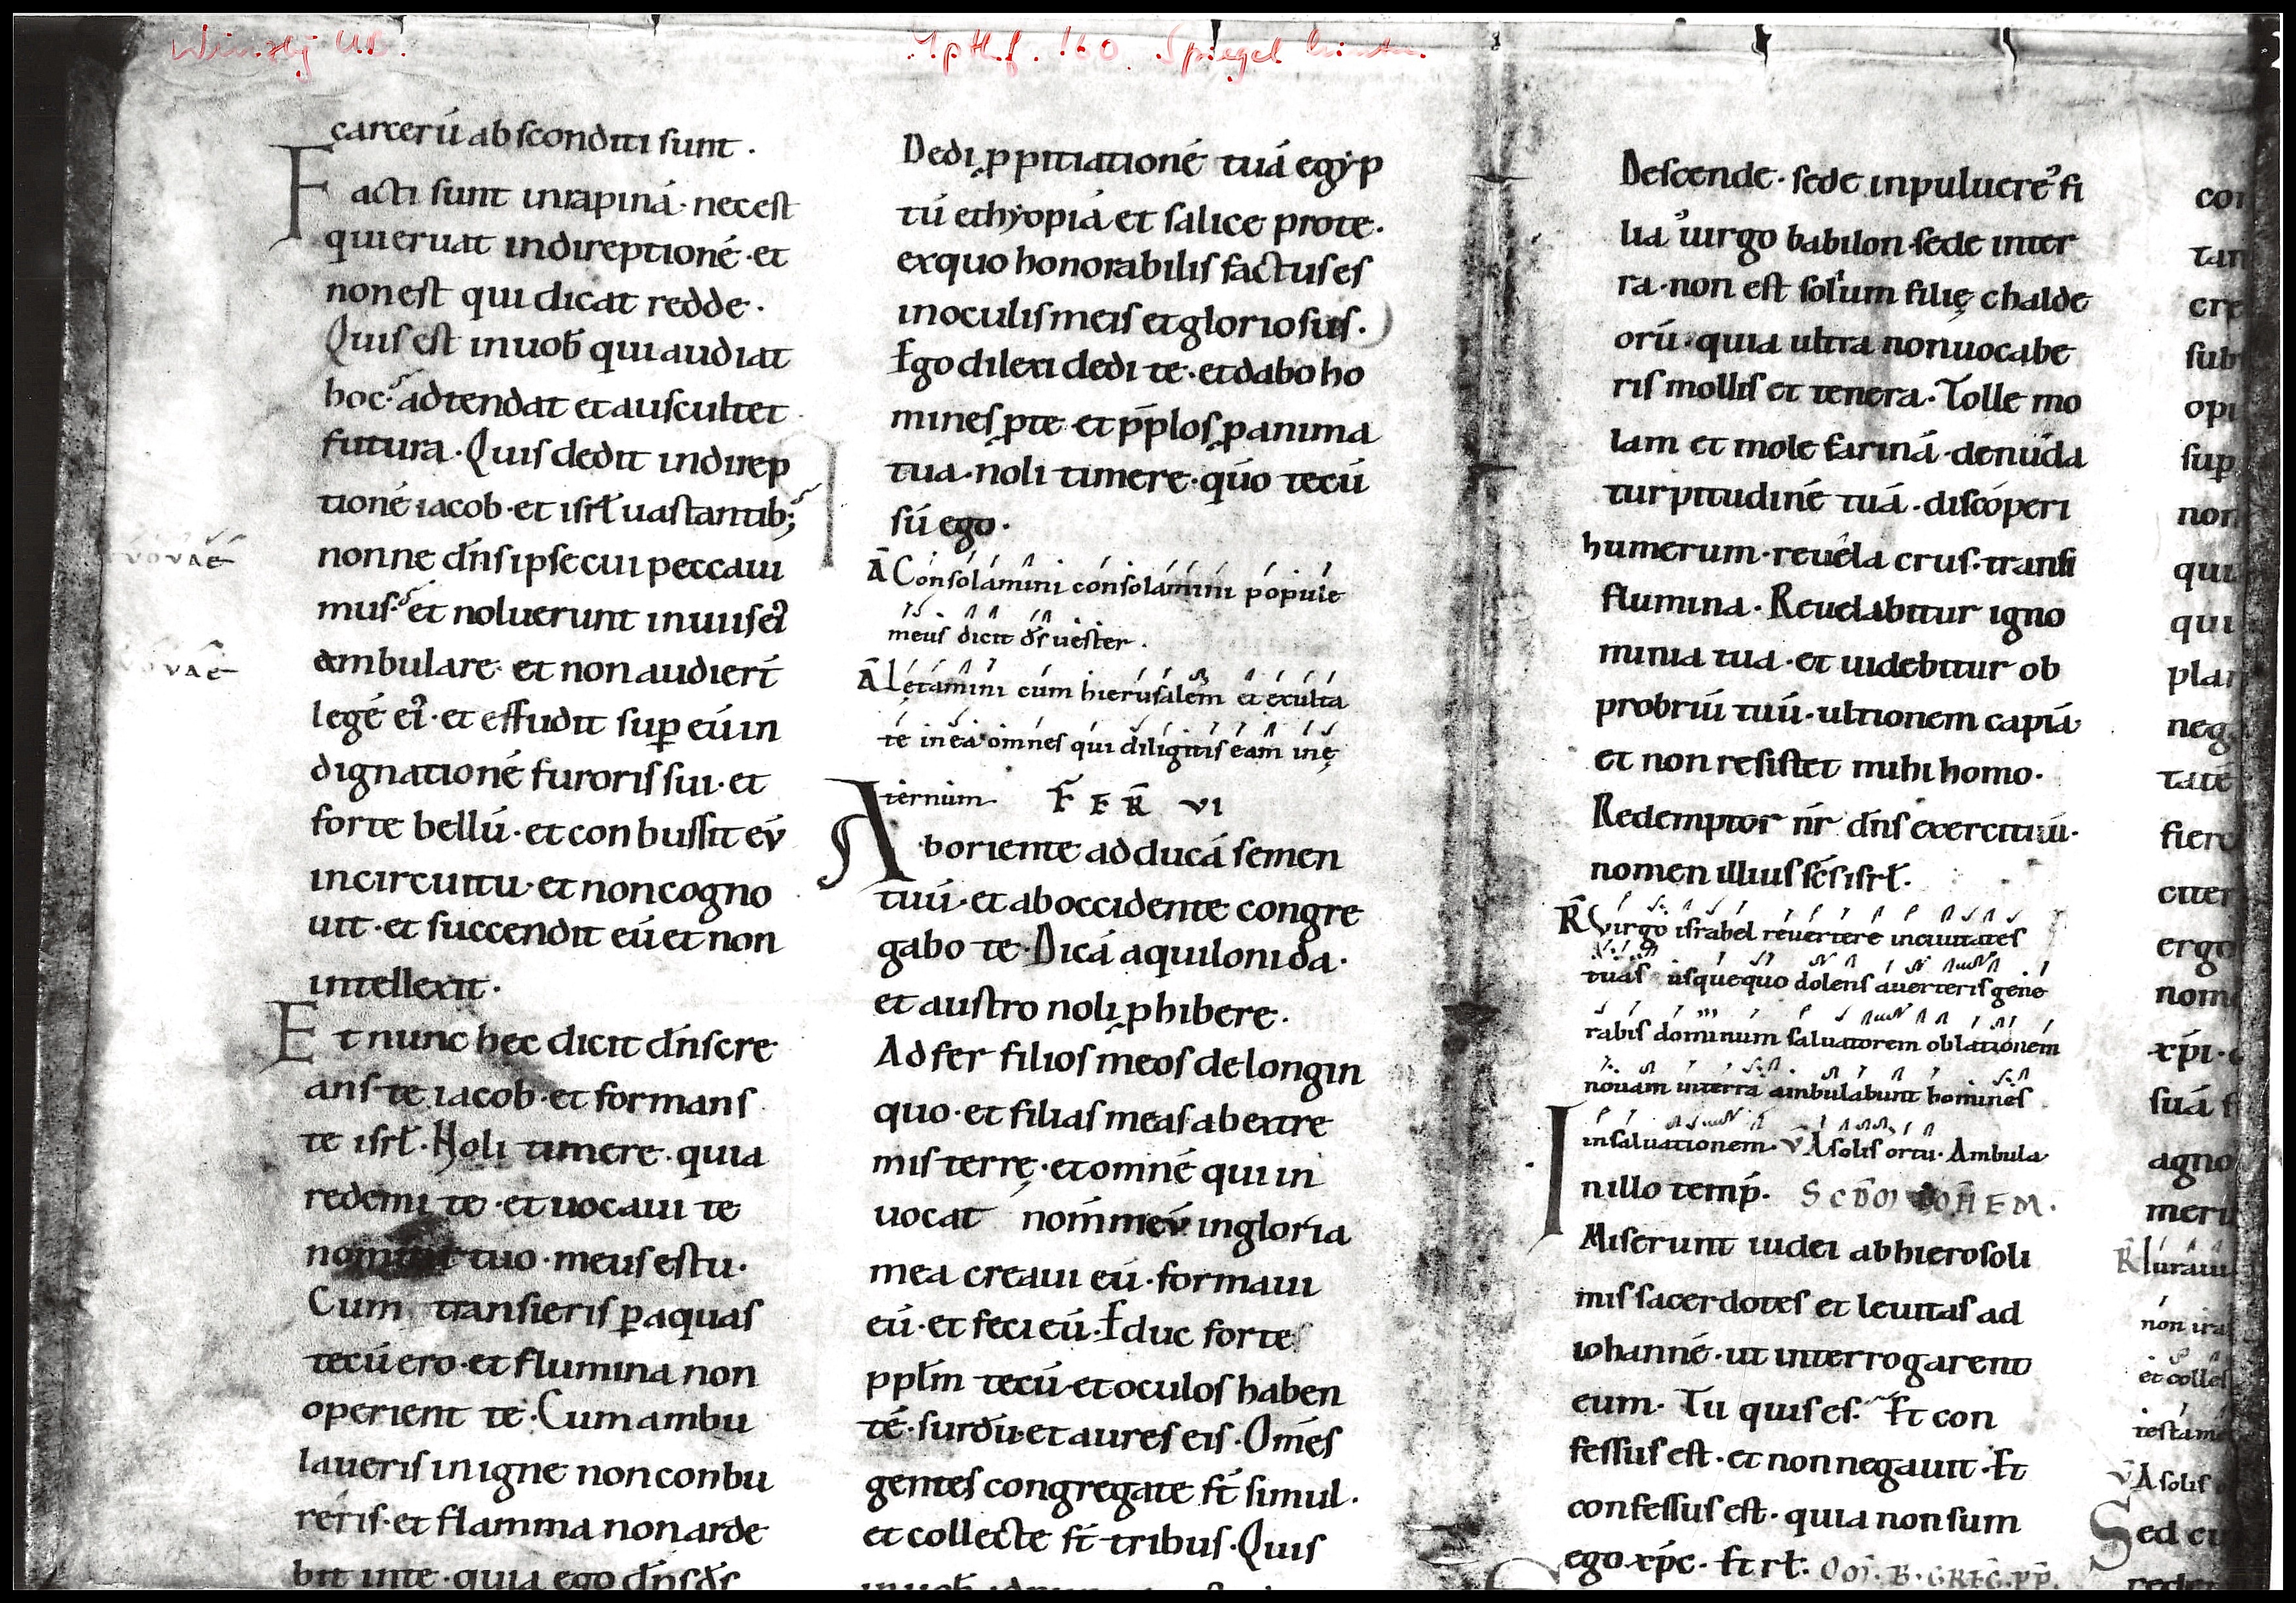 carcerū absconditi sunt.
Facti sunt inrapinā· necest
qui eruat indireptionē·et
nonest qui dicat redde·
Quis est inuob̄ qui audiat
hoc· adtendat et auscultet
futura· Quis dedit indirep
tionē iacob·et isrł uastantib;
nonne dn̄s ipse cui peccaui
mus· et noluerunt inuiis ei
ambulare· et non audiert̄
legē ei·et effudit sup eū in
dignationē furoris sui·et
forte bellū·et conbussit eu
incircuitu·et noncogno
uit·et succendit eū et non
intellexit·
Et nunc hec dicit dn̄s cre
ans te iacob·et formans
te isrł·Noli timere·quia
redemi te·et uocaui te
nomine tuo·meus es tu·
Cum transieris p aquas
tecū ero·et flumina non
operient te·Cum ambu
laueris in igne non conbu
reris·et flamma non arde
bit inte·quia ego dn̄s ds̄
uouae
uouae
Dedi ppitiationē tuā egyp
tū ethyopiā et salice prote·
exquo honorabilis factus es
inoculis meis et gloriosus·
Ego dilexi dedi te·et dabo ho
mines pte et pp̄los p anima
tua·noli timere·qūo tecū
sū ego·
Ā Consolamini consolamini popule
meus dicit ds̄ uester·
Ā Letamini cum hierusalem et exulta
te in ea omnes qui diligitis eam in ę
ternum FER̄ VI
Aboriente adducā semen
tuū·et aboccidente congre
gabo te·Dicā aquiloni da·
et austro noli phibere·
Adfer filios meos de longin
quo·et filias meas ab extre
mis terrę·et omnē qui in
uocat nom̄ meū in gloria
mea creaui eū·formaui
eū·et feci eū·Educ foras
ppl̄m tecū·et oculos haben
tē·surdū·et aures eis·Om̄es
gentes congregate st̄ simul·
et collecte st̄ tribus·Quis
Descende·sede inpuluere fi
lia uirgo babilon·sede inter
ra·non est solium filię chalde
orū·quia ultra non uocabe
ris mollis et tenera·Tolle mo
lam et mole farinā·denuda
turpitudinē tuā·discoperi
humerum·reuela crus·transi
flumina·Reuelabitur igno
minia tua·et uidebitur ob
probriū tuū·ultionem capiā·
et non resistet mihi homo·
Redemptor nr̄ dn̄s exercituū·
nomen illius scs̄ isrł·
R̄ Virgo israhel reuertere inciuitates
tuas usquequo dolens auerteris gene
rabis dominum saluatorem oblationem
nouam interra ambulabunt homines
insaluationem· V̄ A solis ortu· Ambula
Inillo temp̄· SCDM IOHEM·
Miserunt iudei abhierosoli
mis sacerdotes et leuitas ad
iohannē·ut interrogarent
eum· Tu quis es· Et con
fessus est·et non negauit·Et
confessus est·quia non sum
ego xp̄c·Et rł· OM̄·B·GREG·PP̄·
con
tan
ere
sub
opi
sup
non
qui
qui
plan
neg
tatē
fiere
citer
ergo
nom
xp̄i·
suā
agno
meru
R̄ Iuraui
non ira
et colles
testam
V̄ A solis
Sed cu